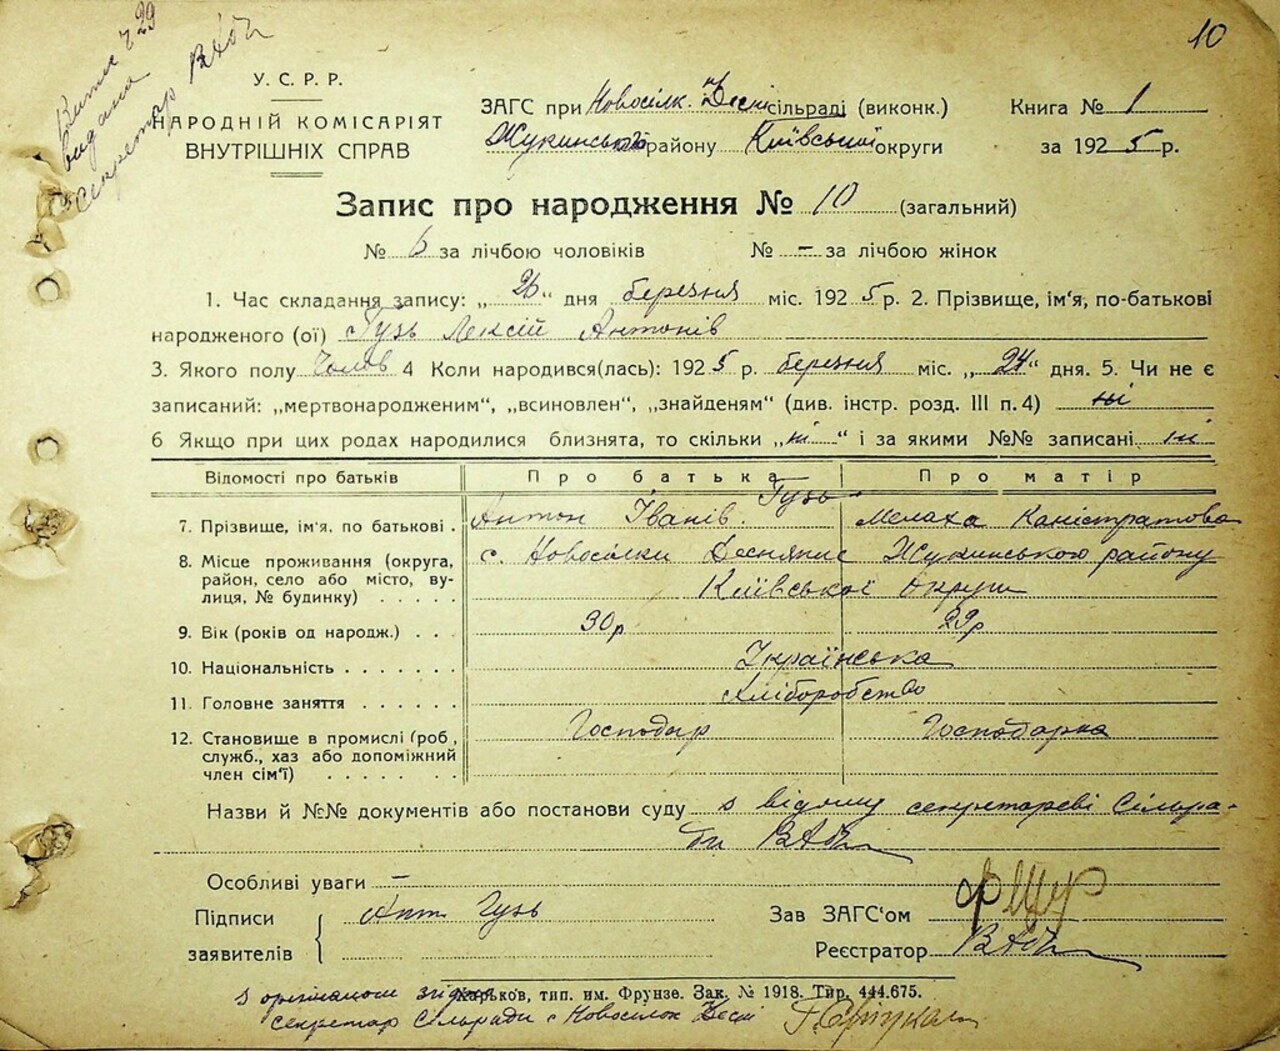 10
Витяг ч 29
видана
Секретар
У. С. Р. Р.
НАРОДНІЙ КОМІСАРІЯТ
ВНУТРІШНІХ СПРАВ
ЗАГС при Новосілк. Десн сільраді (виконк.)
Жукинського району Київської округи
Книга № 1
за 1925 р.
Запис про народження № 10 (загальний)
№ 6 за лічбою чоловіків № – за лічбою жінок
1. Час складання запису: „ 26 “ дня березня міс. 1925 р. 2. Прізвище, ім'я, по-батькові
народженого (ої) Гузь Лексій Антонів
3. Якого полу Чолов 4 Коли народився(лась): 1925 р. березня міс. „ 24 “ дня. 5. Чи не є
записаний: „мертвонародженим“, „всиновлен“, „знайденям“ (див. інстр. розд. III п. 4) ні
6 Якщо при цих родах народилися близнята, то скільки „ ні “ і за якими №№ записані ні
Відомості про батьків Про батька Про матір
7. Прізвище, ім'я, по батькові . Антон Іванів Гузь Мелаха Каністратова
8. Місце проживання (округа, район, село або місто, вулиця, № будинку) . . . . . с. Новосілки Деснянис Жукинського району
Київської округи
9. Вік (років од народж.) . . . 30 р 29 р
10. Національність . . . . . . . Українська
11. Головне заняття . . . . . . Хліборобство
12. Становище в промислі (роб., Господар Господарка
служб., хаз або допоміжний
член сім'ї) . . . . . . .
Назви й №№ документів або постанови суду з відому секретареві Сільра-
ди
Особливі уваги –
Підписи заявителів Ант Гузь
Зав ЗАГС'ом
Реєстратор
Харьков, тип. им. Фрунзе. Зак. № 1918. Тир. 444.675.
з орігіналом згідно
секретар Сільради с Новосілок Десн